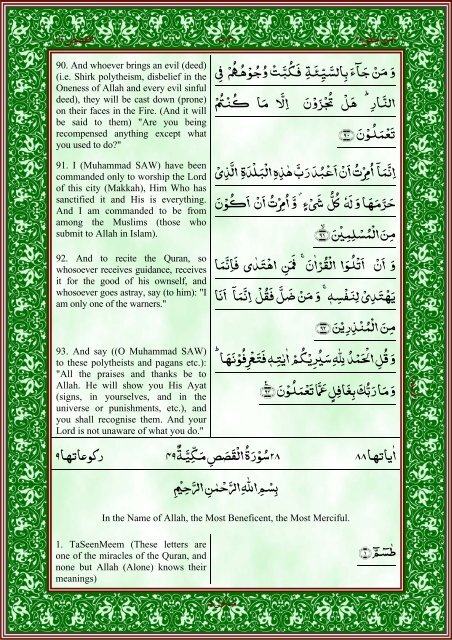 90. And whoever brings an evil (deed)
(i.e. Shirk polytheism, disbelief in the
Oneness of Allah and every evil sinful
deed), they will be cast down (prone)
on their faces in the Fire. (And it will
be said to them) "Are you being
recompensed anything except what
you used to do?"
وَمَنْ جَآءَ بِالسَّيِّئَةِ فَكُبَّتْ وُجُوْهُهُمْ فِى
النَّارِ ؕ هَلْ تُجْزَوْنَ اِلَّا مَا كُنْتُمْ
تَعْمَلُوْنَ ﴿۹۰﴾
91. I (Muhammad SAW) have been
commanded only to worship the Lord
of this city (Makkah), Him Who has
sanctified it and His is everything.
And I am commanded to be from
among the Muslims (those who
submit to Allah in Islam).
اِنَّمَاۤ اُمِرْتُ اَنْ اَعْبُدَ رَبَّ هٰذِهِ الْبَلْدَةِ الَّذِىْ
حَرَّمَهَا وَلَهٗ كُلُّ شَىْءٍ ۫ وَّاُمِرْتُ اَنْ اَكُوْنَ
مِنَ الْمُسْلِمِيْنَ ﴿۹۱﴾
92. And to recite the Quran, so
whosoever receives guidance, receives
it for the good of his ownself, and
whosoever goes astray, say (to him): "I
am only one of the warners."
وَ اَنْ اَتْلُوَا الْقُرْاٰنَ ۚ فَمَنِ اهْتَدٰى فَاِنَّمَا
يَهْتَدِىْ لِنَفْسِهٖ ۚ وَمَنْ ضَلَّ فَقُلْ اِنَّمَاۤ اَنَا
مِنَ الْمُنْذِرِيْنَ ﴿۹۲﴾
93. And say ((O Muhammad SAW)
to these polytheists and pagans etc.):
"All the praises and thanks be to
Allah. He will show you His Ayat
(signs, in yourselves, and in the
universe or punishments, etc.), and
you shall recognise them. And your
Lord is not unaware of what you do."
وَقُلِ الْحَمْدُ لِلّٰهِ سَيُرِيْكُمْ اٰيٰتِهٖ فَتَعْرِفُوْنَهَا ؕ
وَمَا رَبُّكَ بِغَافِلٍ عَمَّا تَعْمَلُوْنَ ﴿۹۳﴾
اٰياتها ۸۸ ۲۸ سُوْرَةُ الْقَصَصِ مَكِّيَّةٌ ۴۹ ركوعاتها ۹
بِسْمِ اللّٰهِ الرَّحْمٰنِ الرَّحِيْمِ
In the Name of Allah, the Most Beneficent, the Most Merciful.
1. TaSeenMeem (These letters are
one of the miracles of the Quran, and
none but Allah (Alone) knows their
meanings)
طٰسٓمّٓ ﴿۱﴾